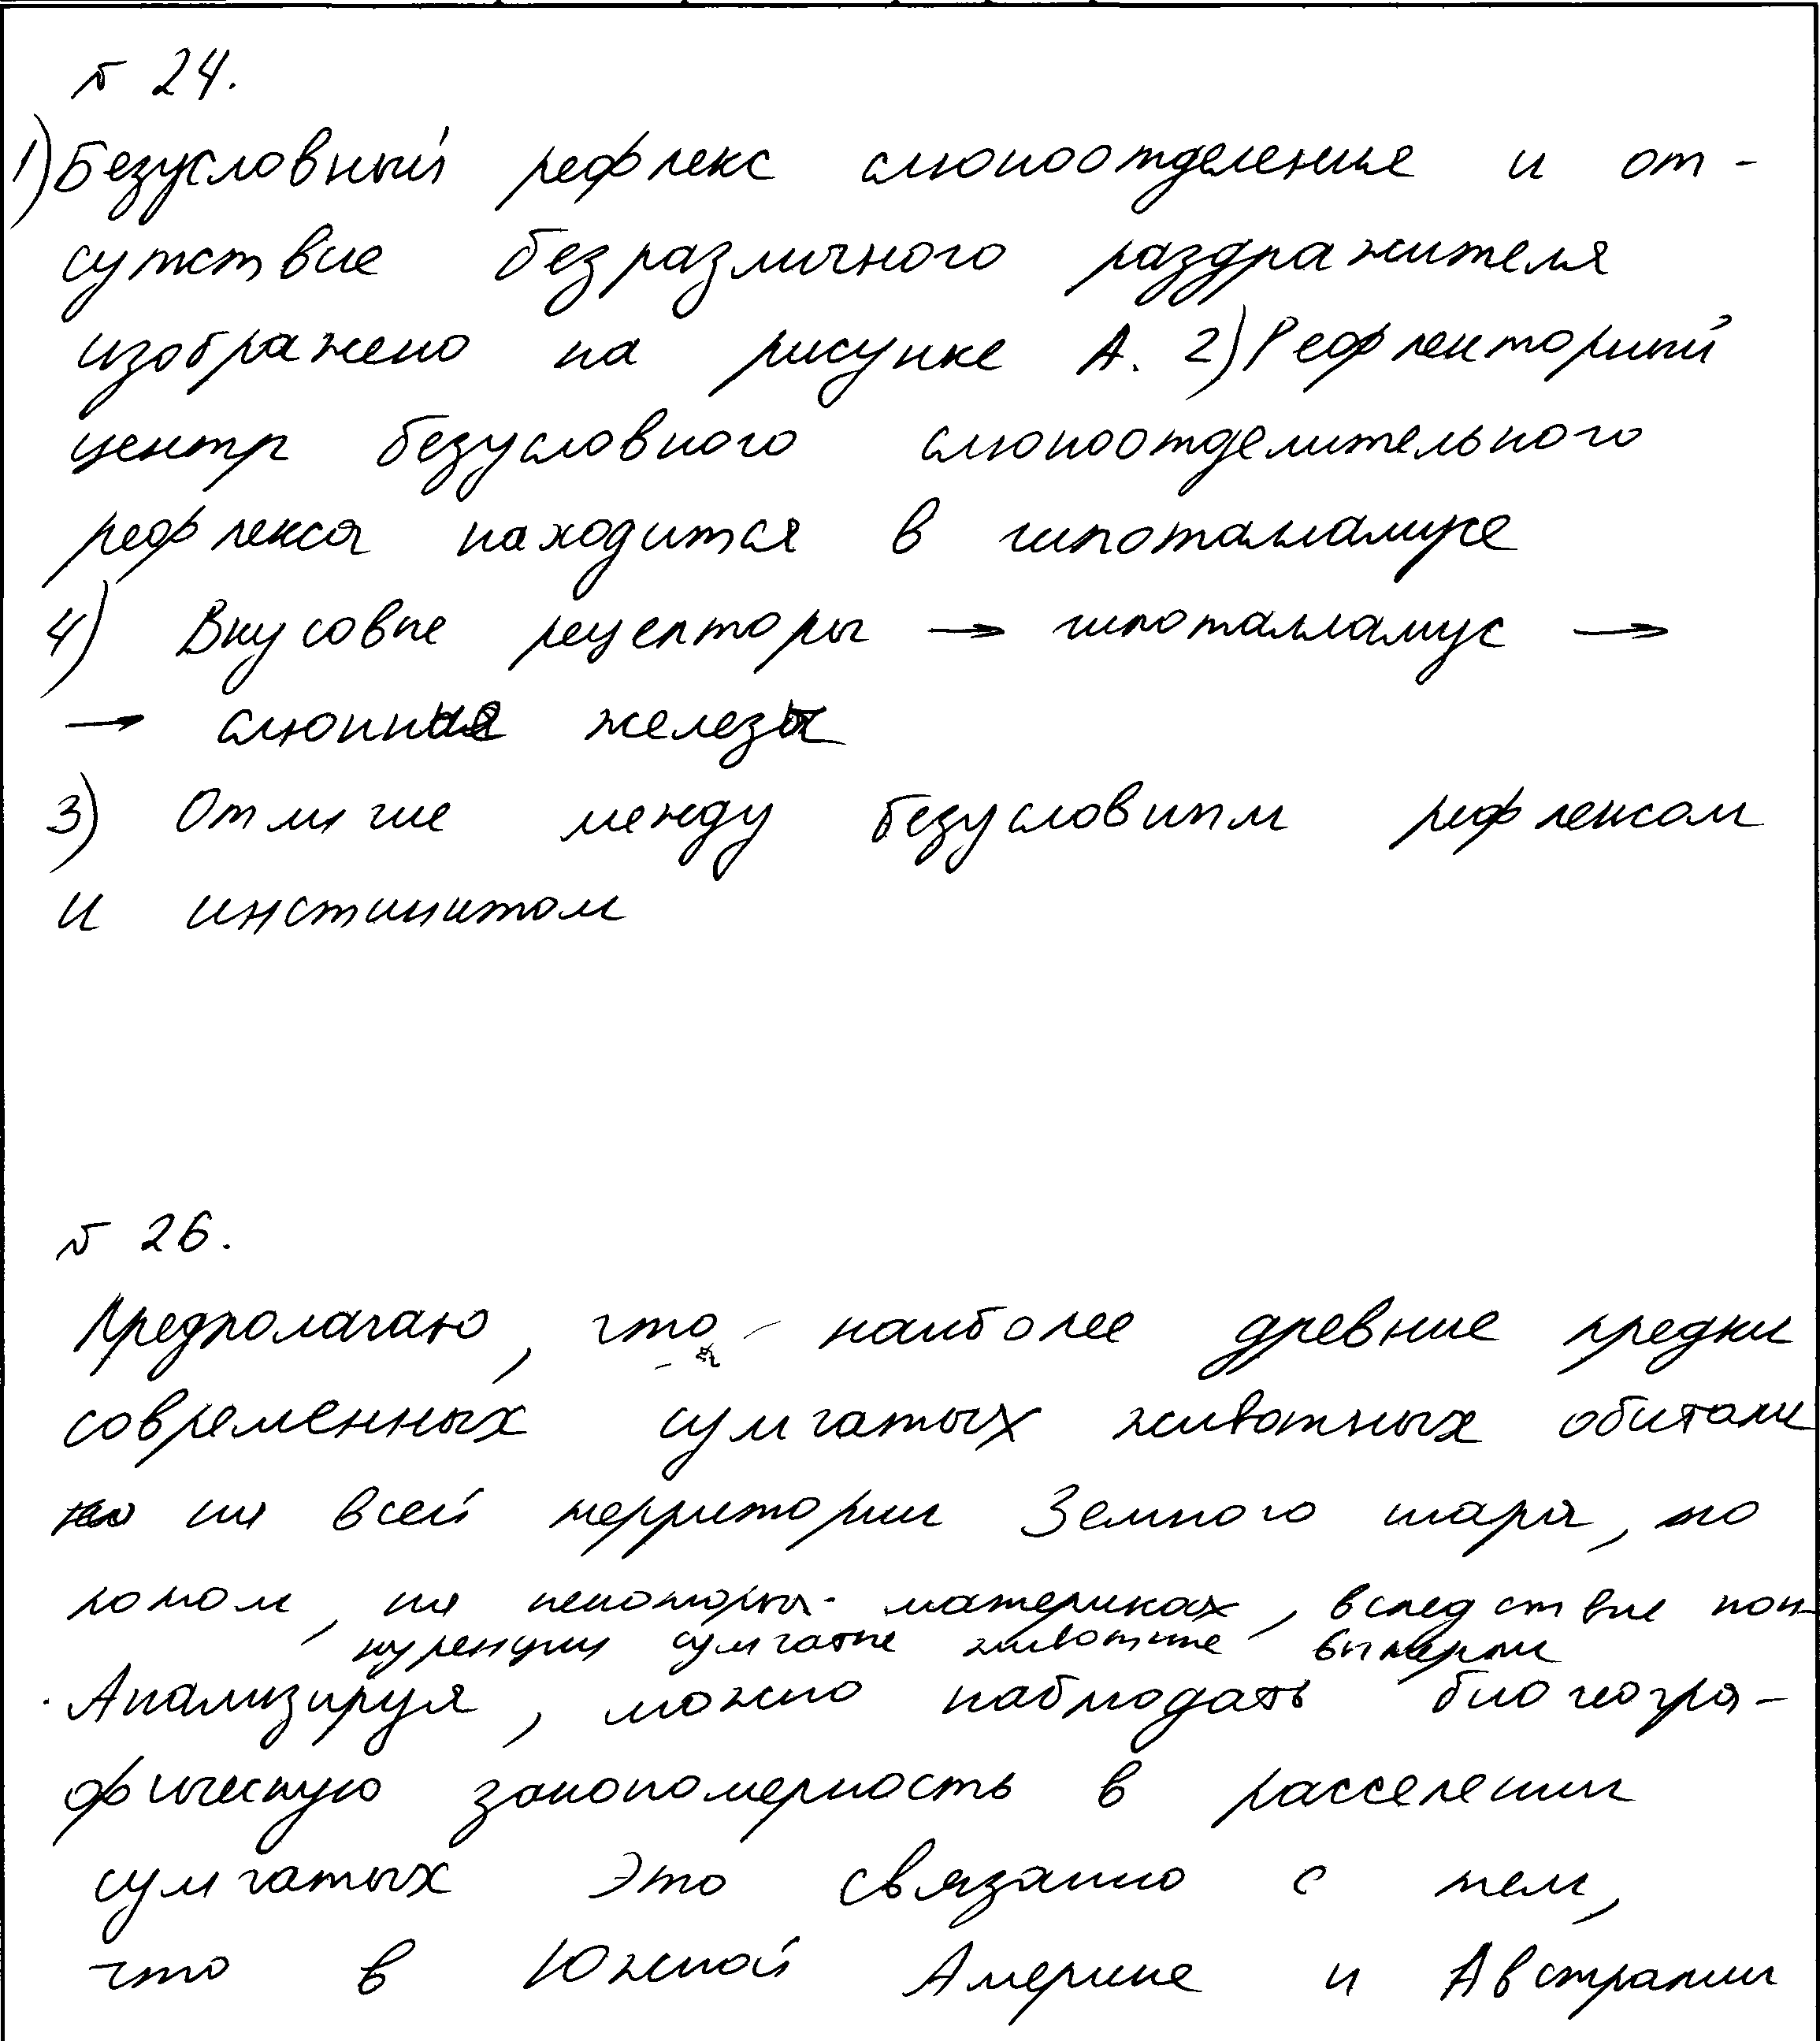 № 24.
1) Безусловный рефлекс слюноотделения и от-
сутствие безразличного раздражителя
изображено на рисунке А. 2) Рефлекторный
центр безусловного слюноотделительного
рефлекса находится в гипоталламусе
4) Вкусовые рецепторы → гипоталламус →
→ слюнная железа
3) Отличие между безусловным рефлексом
и инстинктом
№ 26.
Предполагаю, что наиболее древние предки
современных сумчатых животных обитали
на всей территории Земного шара, но
потом, на некоторых материках, вследствие кон-
куренции сумчатые животные вымерли
Анализируя, можно наблюдать биогеогра-
фическую закономерность в расселении
сумчатых это связанно с тем,
что в Южной Америке и Австралии